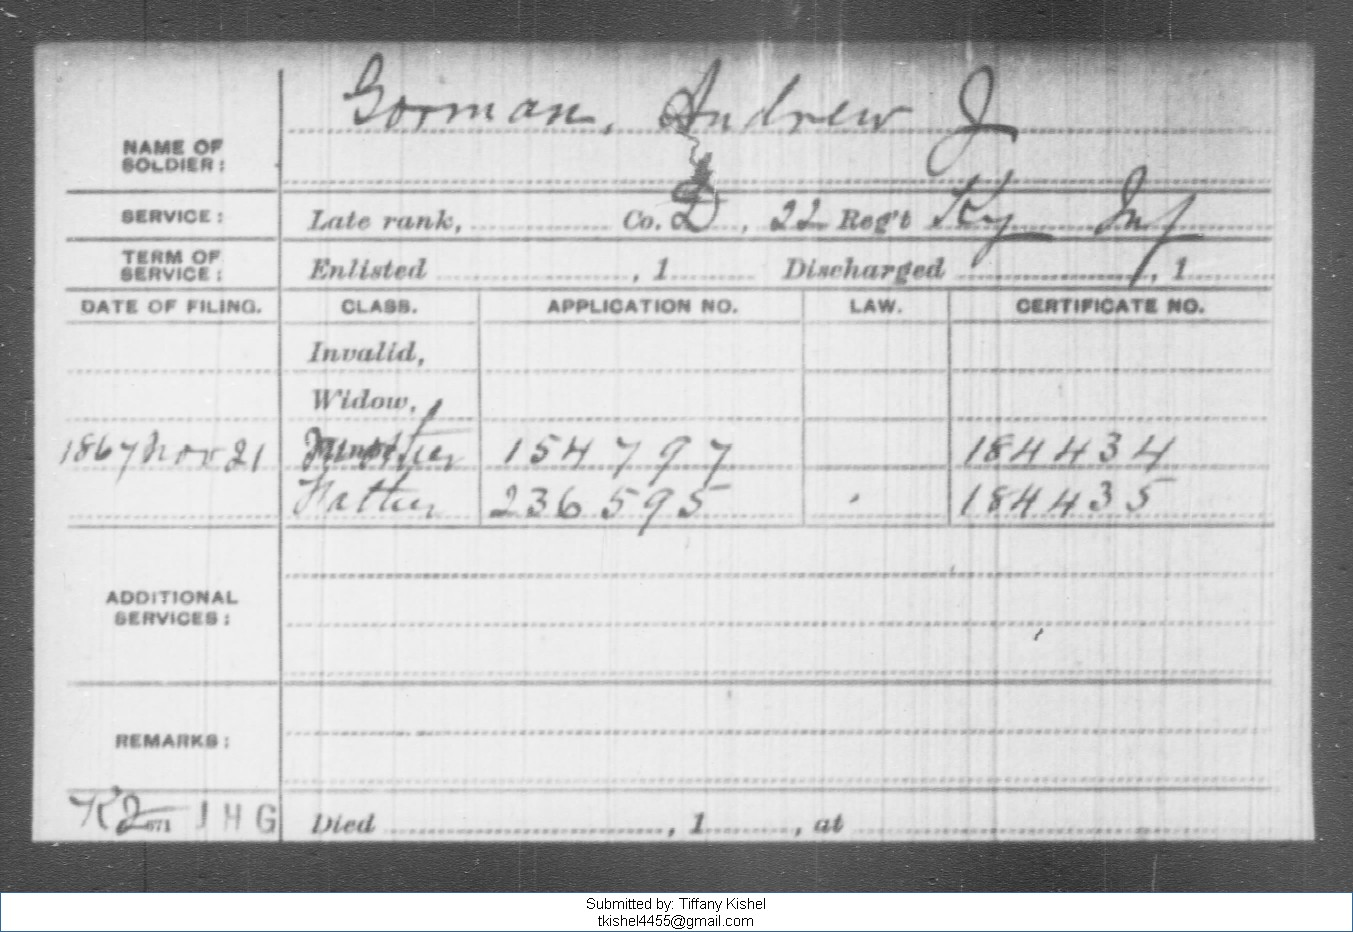 Gorman, Andrew J
NAME OF
SOLDIER:
SERVICE: Late rank, Co. D, 22 Reg't Ky Inf
TERM OF
SERVICE: Enlisted , 1 Discharged , 1
DATE OF FILING. CLASS. APPLICATION NO. LAW. CERTIFICATE NO.
Invalid,
Widow,
1867 Nov 21 Mother 154797 184434
Father 236595 184435
ADDITIONAL
SERVICES:
REMARKS:
671 J H G Died , 1 , at
Submitted by: Tiffany Kishel
tkishel4455@gmail.com